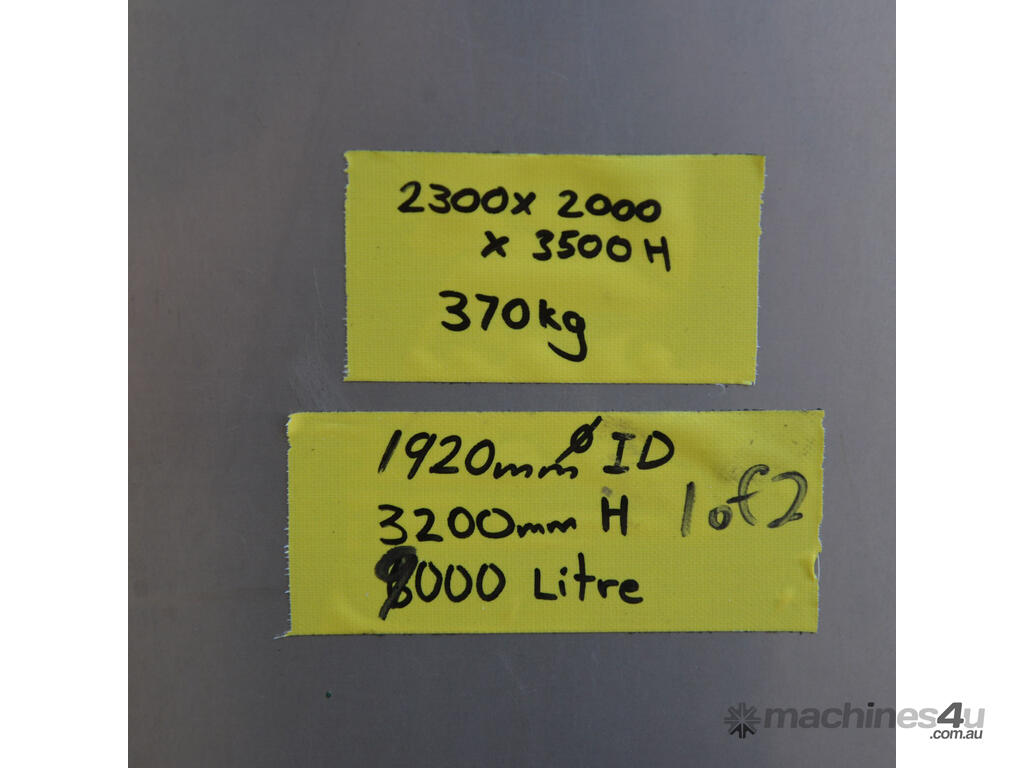 2300 x 2000
x 3500 H
370kg
1920mm ø ID
3200mm H
1 of 2
9000 Litre
machines4u
.com.au